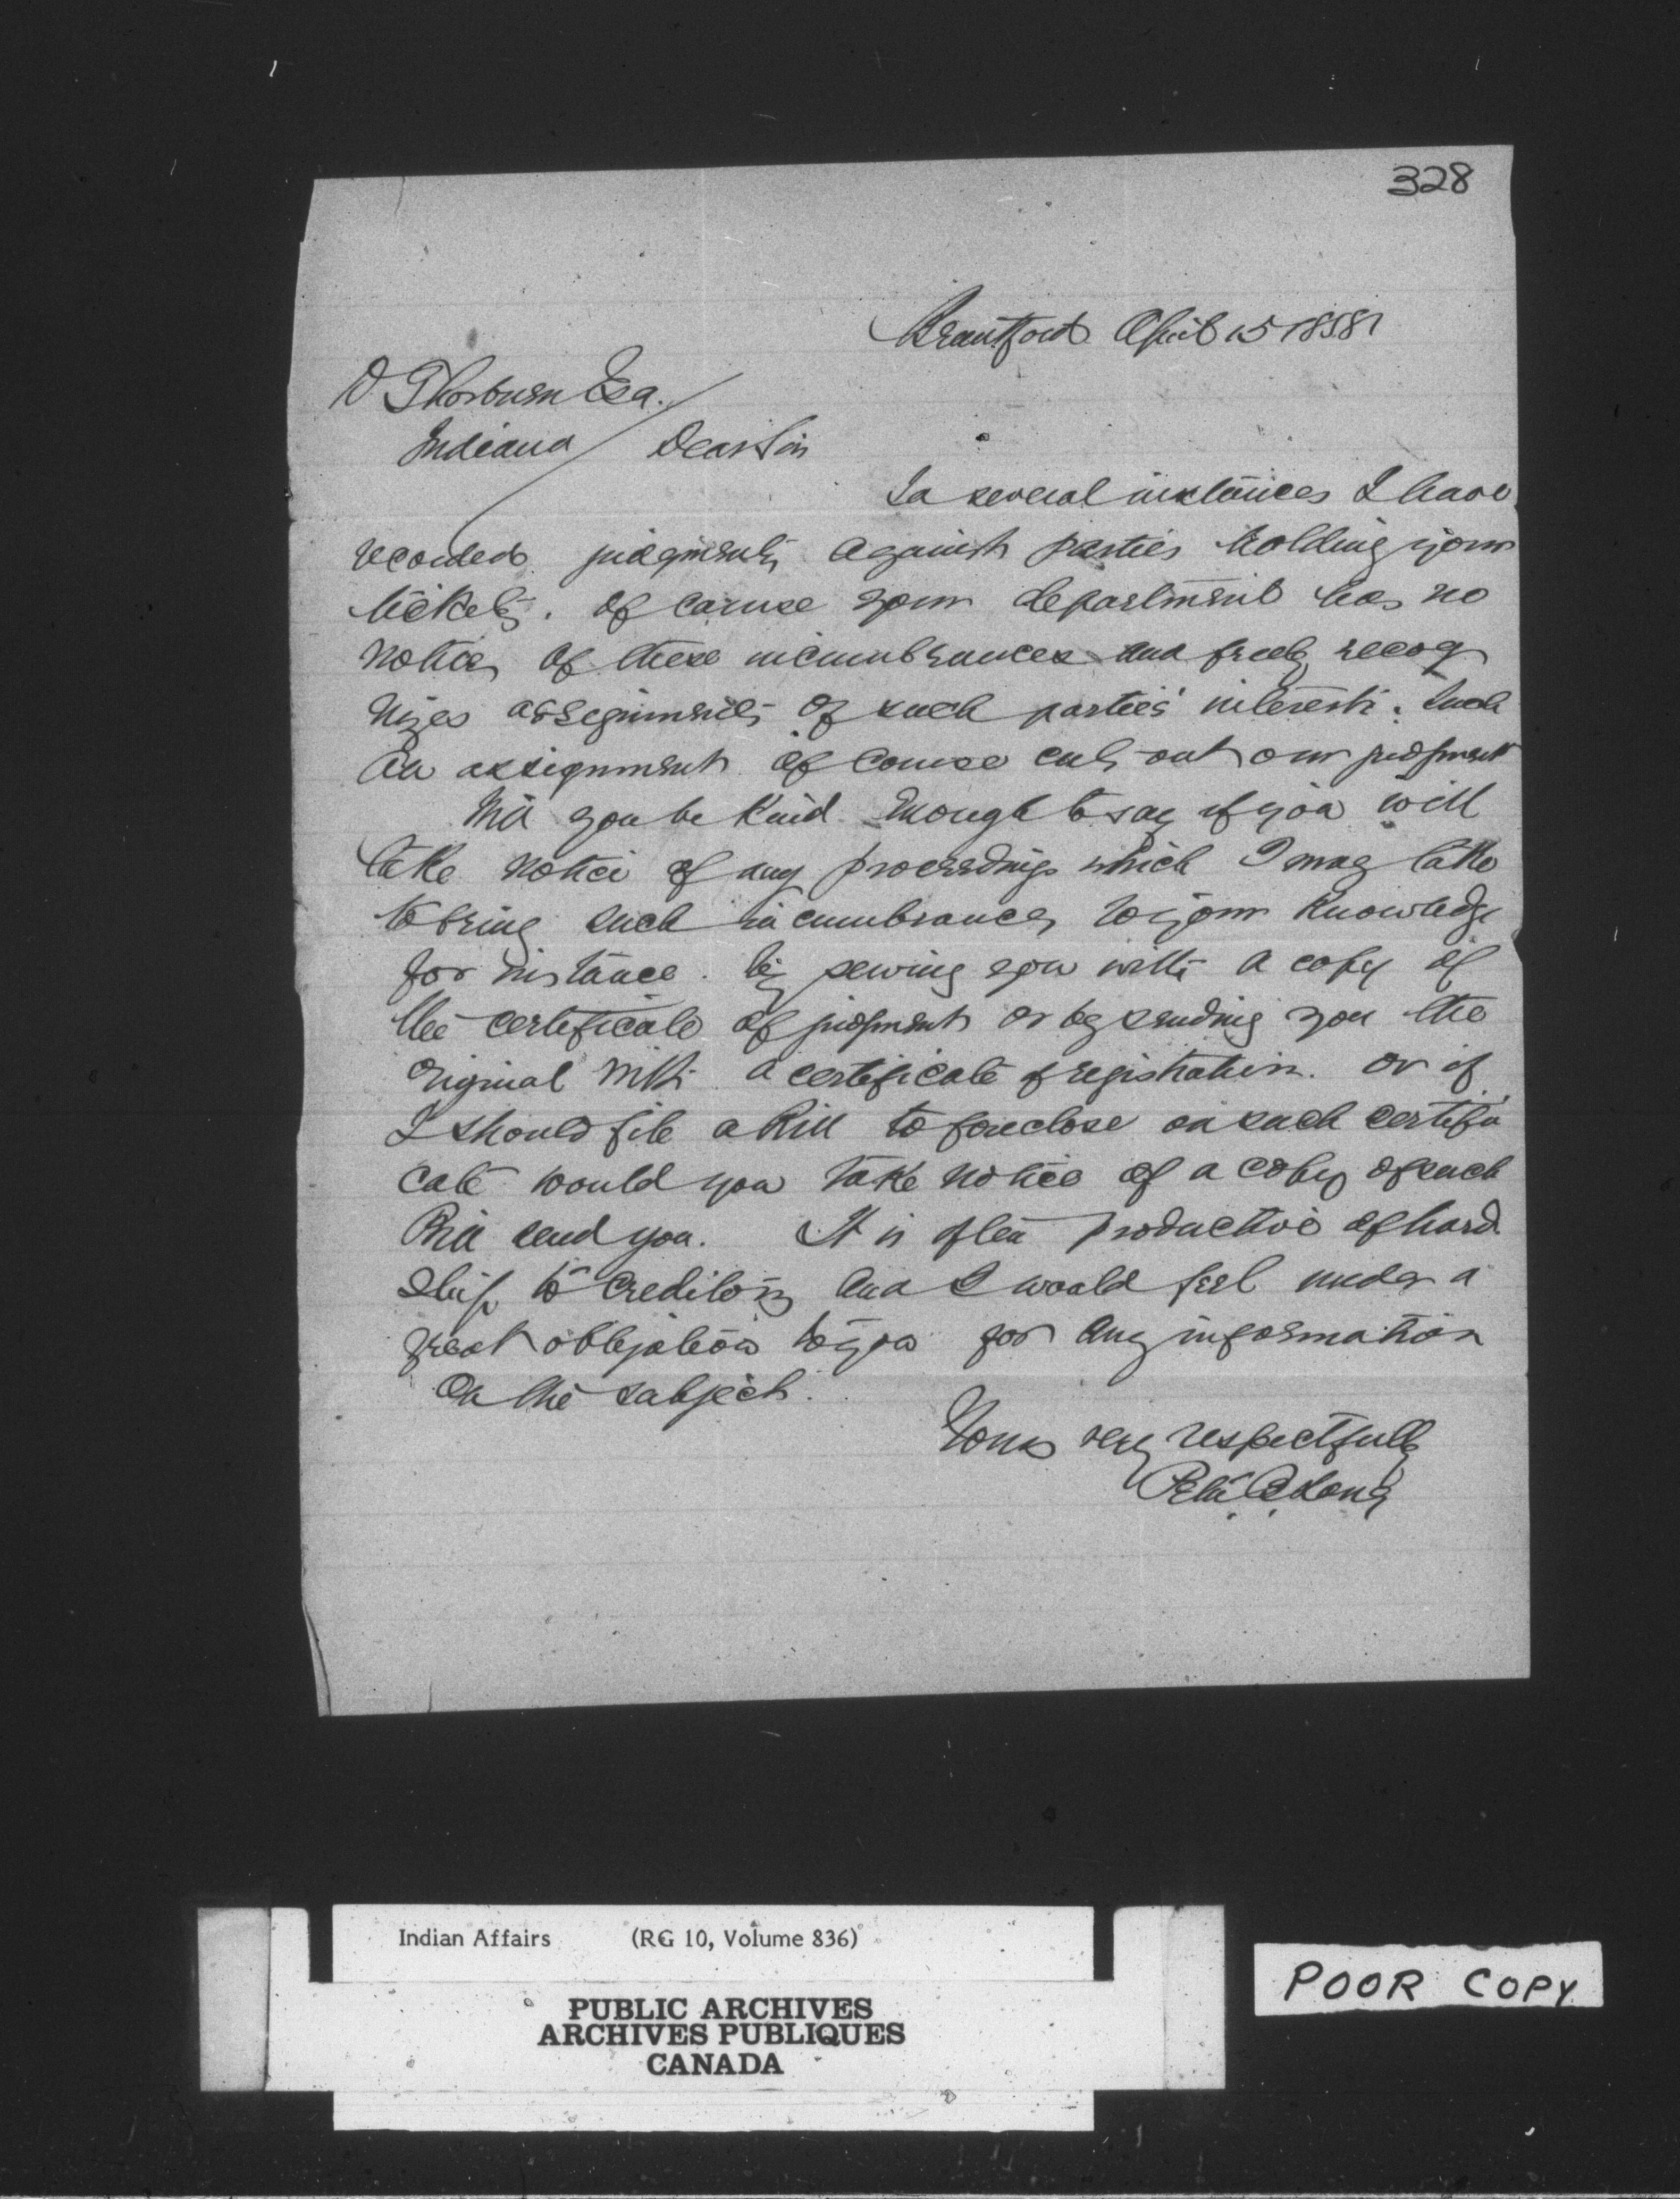 328
Brantford April 15 1858
D Thorburn Esq.
Indiana Dear Sir
In several instances I have
recorded judgments against parties holding your
tickets. Of course your department has no
notice of these incumbrances and freely recog
nizes assignments of such parties' interests. Such
an assignment of course cuts out our judgment
Will you be kind enough to say if you will
take notice of any proceedings which I may take
to bring such incumbrances to your knowledge
for instance. by serving you with a copy of
the certificate of judgment or by sending you the
original with a certificate of registration. or if
I should file a Bill to foreclose on such certifi
cate would you take notice of a copy of such
Bill send you. It is often productive of hard
ship to creditors and I would feel under a
great obligation to you for any information
on the subject.
Yours very respectfully
Long
Indian Affairs (RG 10, Volume 836)
PUBLIC ARCHIVES
ARCHIVES PUBLIQUES
CANADA
POOR COPY